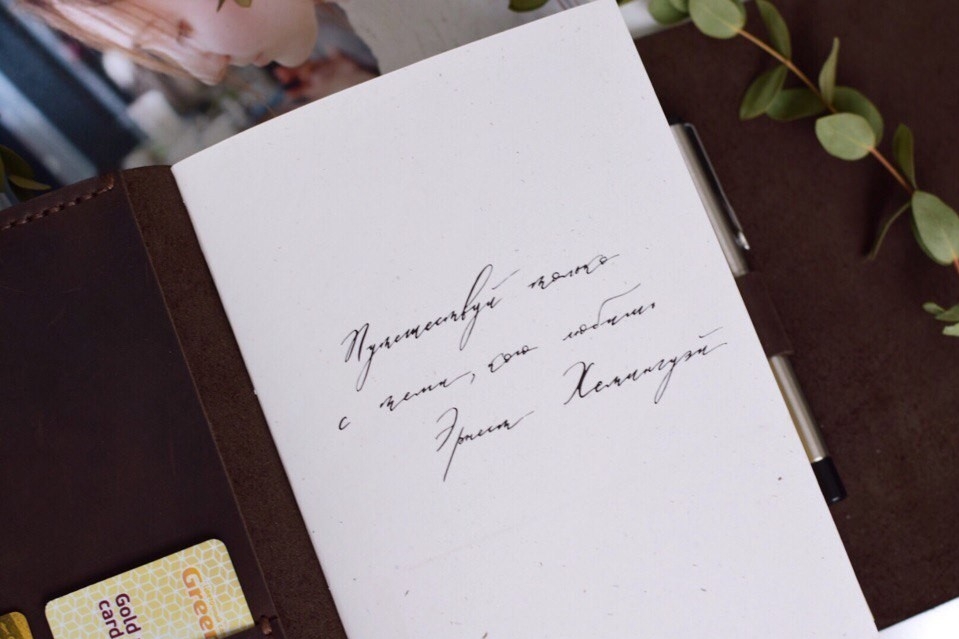 Путешествуй только
с теми, кого любишь.
Эрнест Хемингуэй
Gree
Gold
card